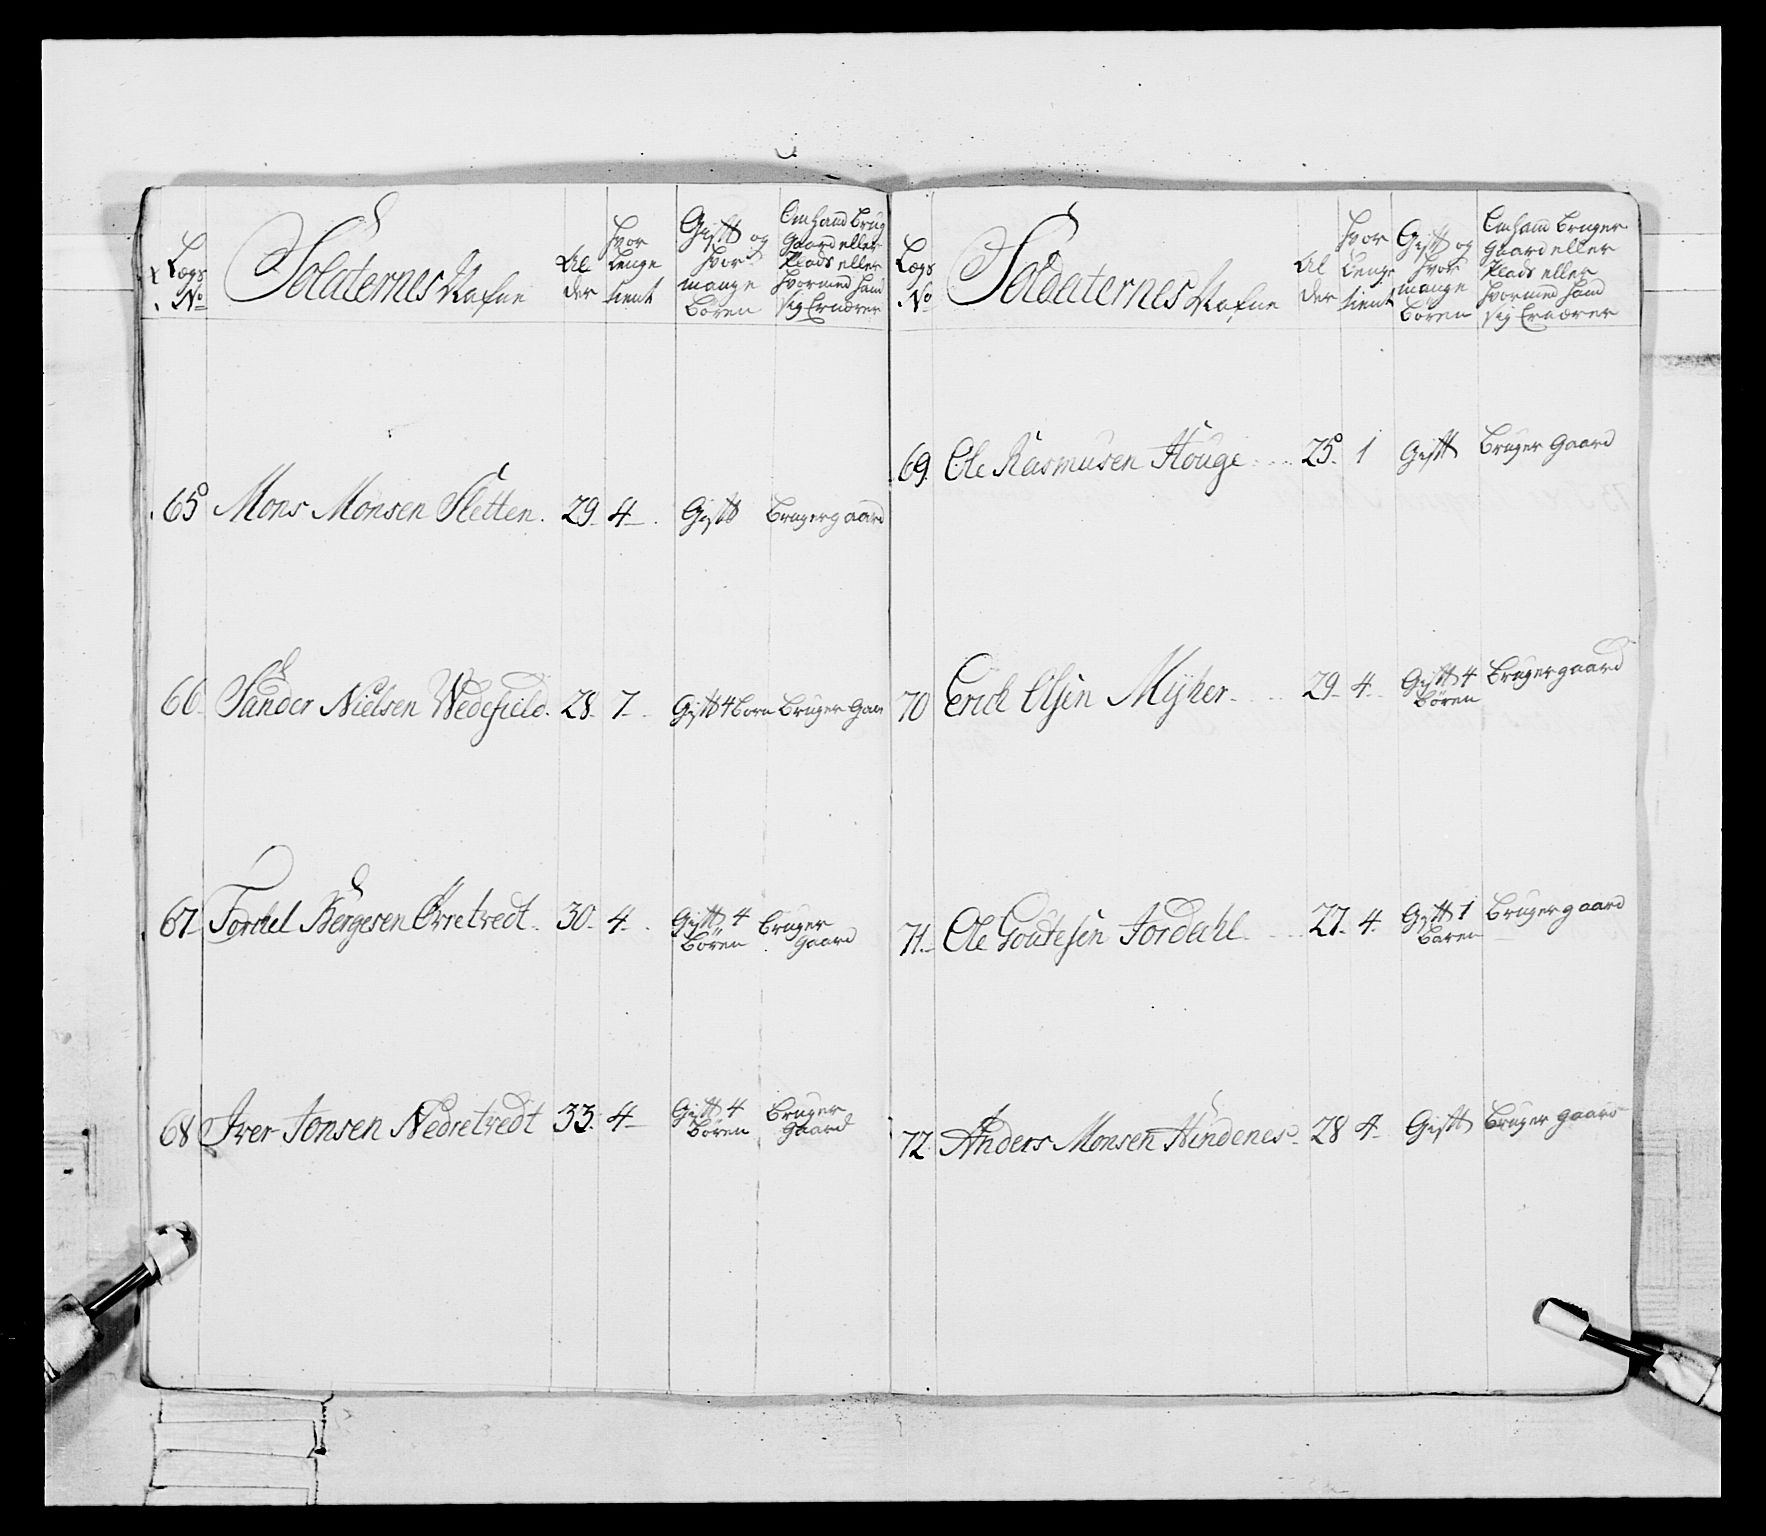 Lægs No
Soldaternes Nafne
Al der
hvor lenge tient
Gift og hvor mange Børen
Om hand brug Gaard eller Plads eller hvormed hand sig Ernærer
65 Mons Monsen Sletten. 29. 4. Gift Bruger gaard
66. Sander Nielsen Wedefield. 28. 7. Gift 4 Børn Bruger Gaar
67. Torckel Børgesen Øvretvedt. 30. 4. Gift 4 Børen Bruger Gaard
68 Iver Jonsen Nedretvedt 33. 4. Gift 4 Børen Bruger Gaard
Lægs No
Soldaternes Nafne
Al der
hvor lenge tient
Gift og hvor mange Børen
Om hand bruger Gaard eller Plads eller hvormed hand sig Ernærer
69. Ole Rasmusen Houge. 25. 1 Gift Bruger Gaard
70 Erick Olsen Myher. 29. 4. Gift 4 Børen Bruger gaard
71. Ole Goutesen Jordahl. 27. 4. Gift 1 Baren Bruger gaard
72. Anders Monsen Hindenes. 28 4. Gift Bruger gaard